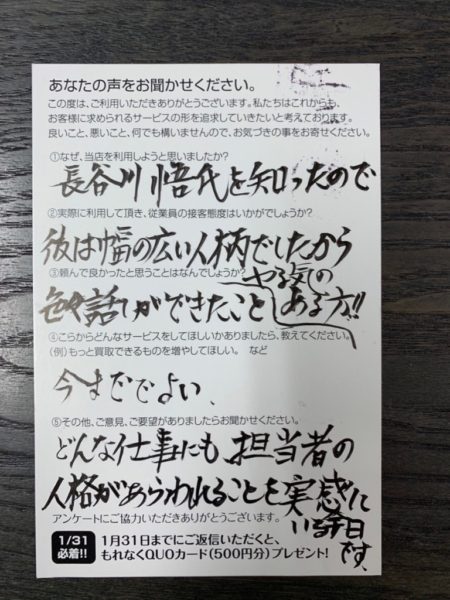 あなたの声をお聞かせください。
この度は、ご利用いただきありがとうございます。私たちはこれからも、
お客様に求められるサービスの形を追求していきたいと考えております。
良いこと、悪いこと、何でも構いませんので、お気づきの事をお寄せください。
①なぜ、当店を利用しようと思いましたか?
長谷川悟氏を知ったので
②実際に利用して頂き、従業員の接客態度はいかがでしょうか?
彼は幅の広い人柄でしたから
③頼んで良かったと思うことはなんでしょうか?
やる気の
色々話しができたこと
ある方!!
④こらからどんなサービスをしてほしいかありましたら、教えてください。
(例)もっと買取できるものを増やしてほしい。 など
今まででよい、
⑤その他、ご意見、ご要望がありましたらお聞かせください。
どんな仕事にも、担当者の
人格があらわれることを実感して
いる今日
です、
アンケートにご協力いただきありがとうございます。
1/31
必着!!
1月31日までにご返信いただくと、
もれなくQUOカード(500円分)プレゼント!